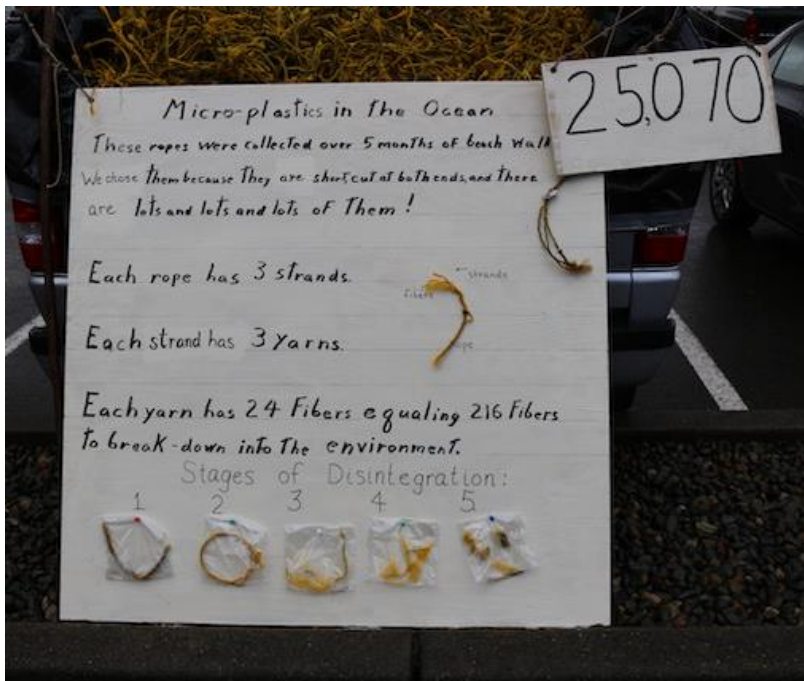 Micro-plastics in The Ocean
25,070
These ropes were collected over 5 months of beach walk
We chose them because They are short, cut at both ends, and there
are lots and lots and lots of Them!
Each rope has 3 strands.
strands
fibers
Each strand has 3 yarns.
Each yarn has 24 Fibers equaling 216 Fibers
to break-down into The environment.
Stages of Disintegration:
1 2 3 4 5